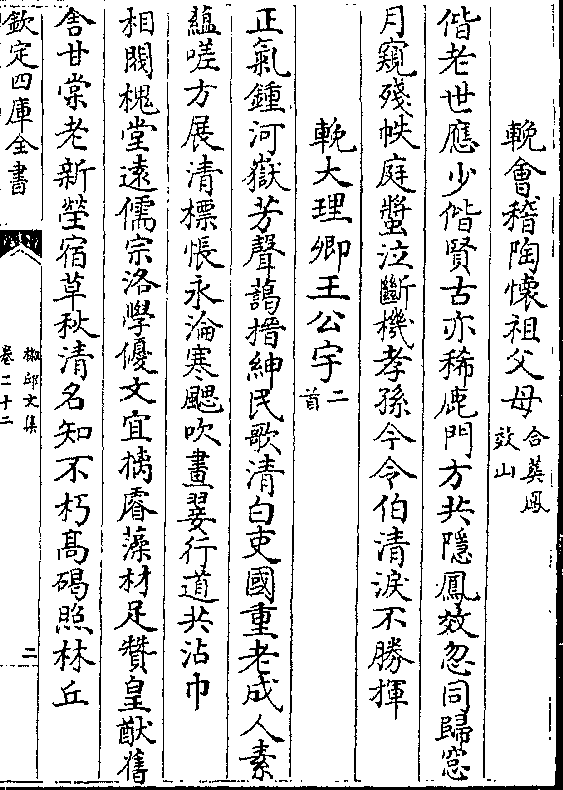 輓會稽陶懷祖父母合葬鳳效山
偕老世應少偕賢古亦稀鹿門方共隱鳳效忽同歸窓
月窺殘帙庭螿泣斷機孝孫今令伯清淚不勝揮
輓大理卿王公宇二首
正氣鍾河嶽芳聲藹搢紳民歌清白吏國重老成人素
蘊嗟方展清標悵永淪寒颸吹畫翣行道共沾巾
相閥槐堂遠儒宗洛學優文宜摛睿藻材足贊皇猷舊
舎甘棠老新塋宿草秋清名知不朽髙碣照林丘
欽定四庫全書
椒邱文集
卷二十二
二